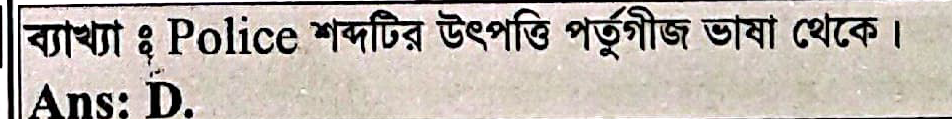 ব্যাখ্যা ঃ Police শব্দটির উৎপত্তি পর্তুগীজ ভাষা থেকে।
Ans: D.